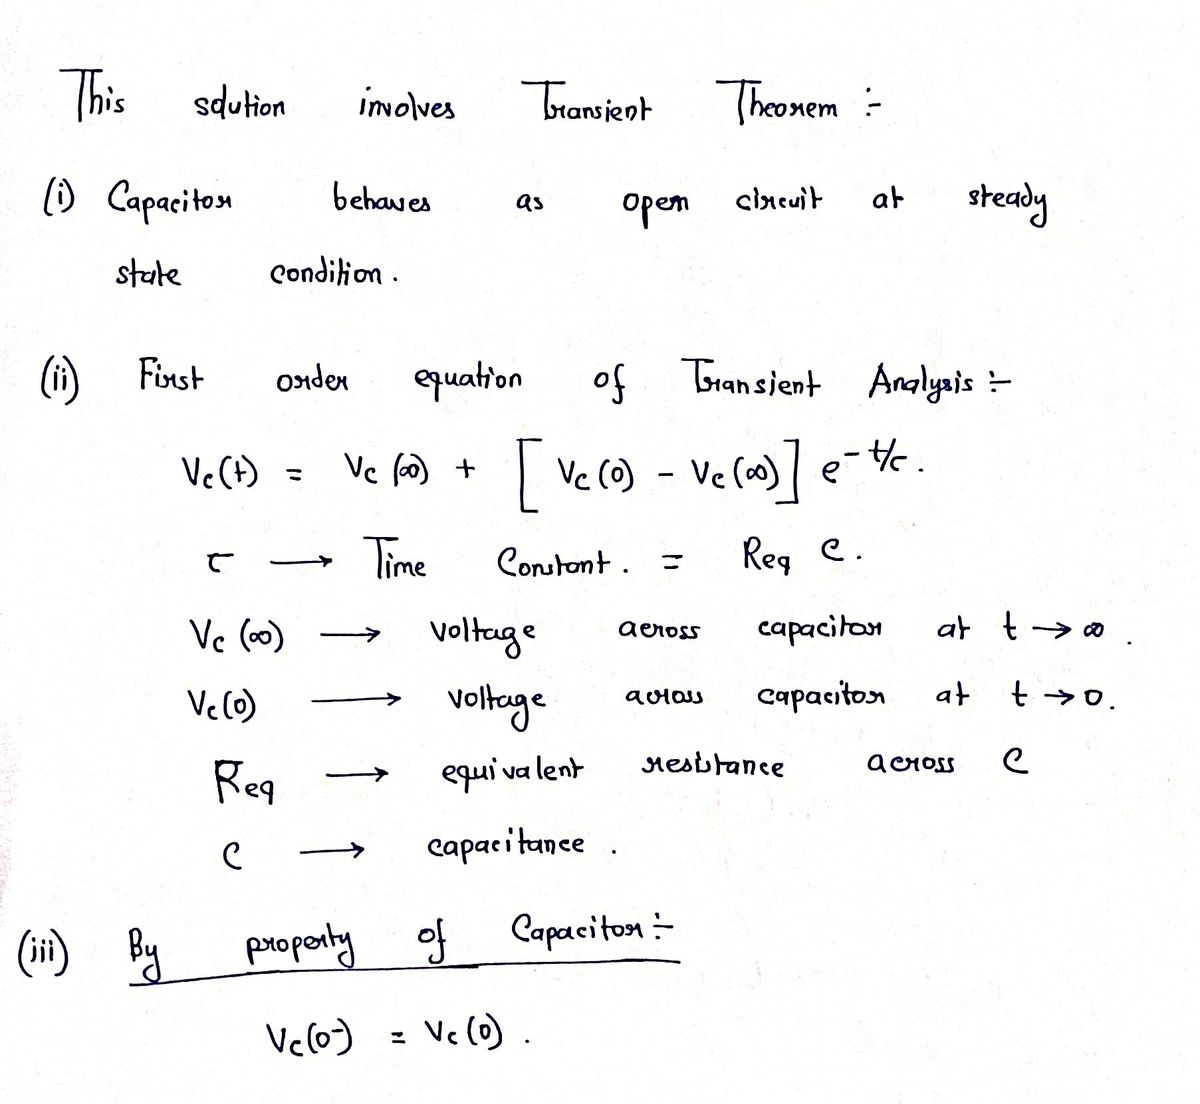 This solution involves Transient Theorem :-
(i) Capacitor behaves as open circuit at steady
state condition.
(ii) First order equation of Transient Analysis :-
Vc(t) = Vc (∞) + [ Vc (0) - Vc (∞) ] e^-t/τ.
τ → Time Constant. = Req C.
Vc (∞) → voltage across capacitor at t → ∞.
Vc(0) → voltage across capacitor at t → 0.
Req → equivalent resistance across C
C → capacitance.
(iii) By property of Capacitor :-
Vc(0-) = Vc (0).